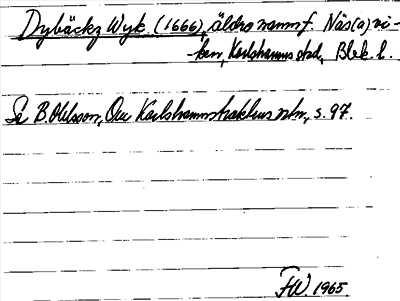 Dybäckz Wyk (1666), äldre namn f. Näs(a)vi-
ken, Karlshamns stad, Blek. l.
Se B. Ohlsson, Om Karlshamnstraktens ortn., s. 97.
FW. 1965